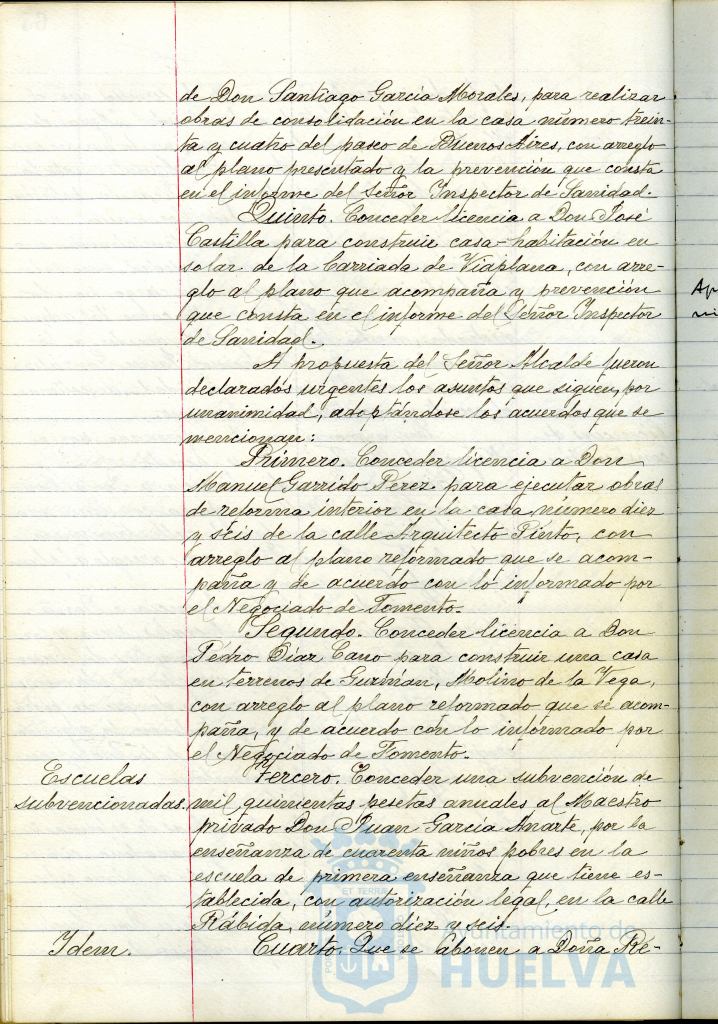 de Don Santiago García Morales, para realizar
obras de consolidación en la casa número trein-
ta y cuatro del paseo de Buenos Aires, con arreglo
al plano presentado y la prevención que consta
en el informe del Señor Inspector de Sanidad.
Quinto. Conceder licencia a Don José
Castilla para construir casa-habitación en
solar de la barriada de Viaplana, con arre-
glo al plano que acompaña y prevención
que consta en el informe del Señor Inspector
de Sanidad.
A propuesta del Señor Alcalde fueron
declarados urgentes los asuntos que siguen, por
unanimidad, adoptándose los acuerdos que se
mencionan:
Primero. Conceder licencia a Don
Manuel Garrido Pérez para ejecutar obras
de reforma interior en la casa número diez
y séis de la calle Arquitecto Pinto, con
arreglo al plano reformado que se acom-
paña y de acuerdo con lo informado por
el Negociado de Fomento.
Segundo. Conceder licencia a Don
Pedro Díaz Cano para construir una casa
en terrenos de Guzmán, Molino de la Vega,
con arreglo al plano reformado que se acom-
paña, y de acuerdo con lo informado por
el Negociado de Fomento.
Escuelas
subvencionadas.
Tercero. Conceder una subvención de
mil quinientas pesetas anuales al Maestro
privado Don Juan García Anarte, por la
enseñanza de cuarenta niños pobres en la
escuela de primera enseñanza que tiene es-
tablecida, con autorización legal, en la calle
Rábida, número diez y seis.
Idem.
Cuarto. Que se abonen a Doña Re-
Ayuntamiento de
HUELVA